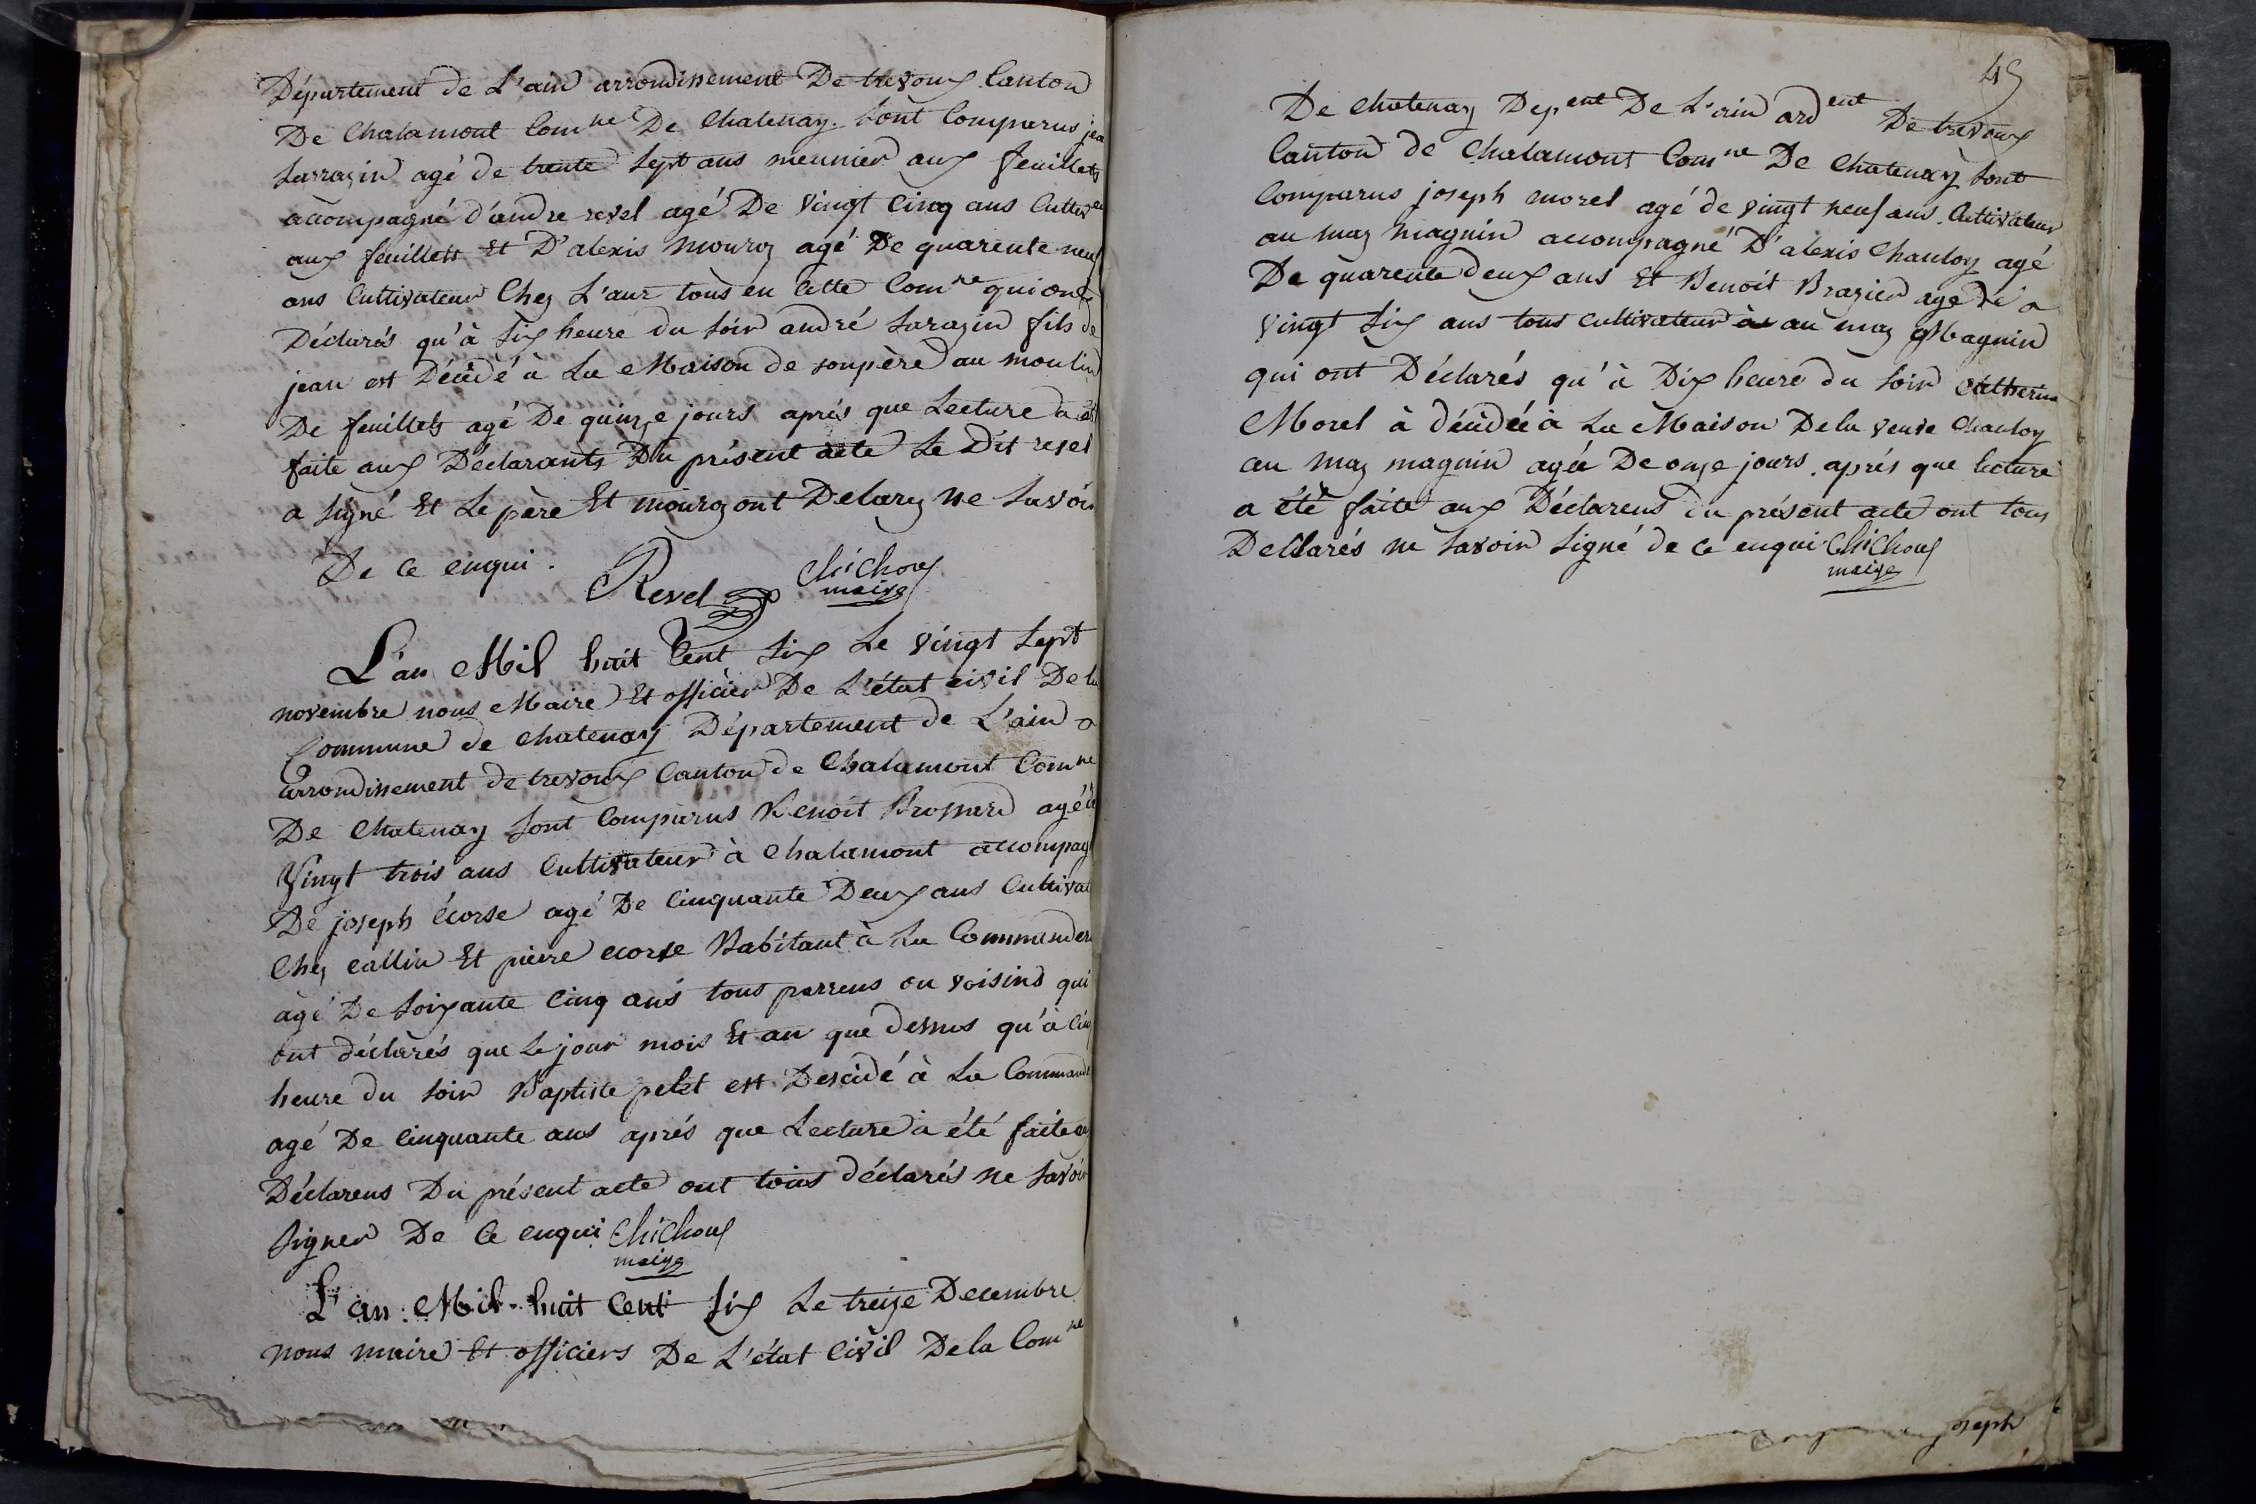 Département de L'ain arrondissement De trevoux Canton
De Chalamont Com ne De Chatenay. Sont Comparus jea
Sarrazin agé de trente Sept ans meunier aux feuillets
acompagné d'andre revel agé De Vingt Cinq ans Cultiv
aux feuillets Et D'alexis mouroz agé De quarente neuf
ans Cultivateur Chez L'aur tous en Cette Com ne qui ont
Déclarés qu'à Six heure du Soir andré Sarazin fils de
jean est Décédé à La Maison de sonpère au moulin
De feuillets agé De quinze jours aprés que Lecture a été
faite aux Déclarants Du présent acte Le Dit revel
a Signé Et Le père Et mouroz ont Delarez ne Savoir
De Ce enqui.
Revel Chichoux
maire
L'an Mil huit Cent Six Le Vingt Sept
novembre nous Maire Et officier De L'état civil De la
Commune de chatenay Département de L'ain
arrondissement de trevoux Canton de Chalamont Com ne
De Chatenay Sont Comparus Benoit Brossard agé de
Vingt trois ans Cultivateur à Chalamont accompag
De joseph écorse agé De Cinquante Deux ans Cultivat
Chez callin Et pierre ecorse Habitant à La Commander
agé De Soixante Cinq ans tous parrens ou voisins qui
ont déclarés que Le jour mois Et an que dessus qu'à Cinq
heure du Soir Baptiste petet est Decidé à La Command
agé De Cinquante ans aprés que Lecture à été faite au
Déclarens Du présent acte ont tous déclarés ne Savoir
Signer De Ce enqui Chichoux
maire
L'an Mil huit Cent Six Le treize Decembre
nous maire Et officiers De L'état Civil De la Com ne
45
De chatenay Dep ent De L'ain ard ent De trevoux
Canton de Chalamont Com ne De Chatenay Sont
Comparus joseph morel agé de vingt neuf ans Cultivateur
au maz magnin accompagné D'alexis Chauloy agé
De quarente deux ans Et Benoit Brazier agé de
Vingt Six ans tous cultivateur au maz Magnin
qui ont Déclarés qu'à Dix heure du Soir Catherine
Morel à décidée à La Maison De la veuve Chauloy
au maz magnin agée De onze jours aprés que lecture
a été faite aux Déclarens du présent acte ont tous
Declarés ne Savoir Signé de Ce enqui Chichoux
maire
oseph